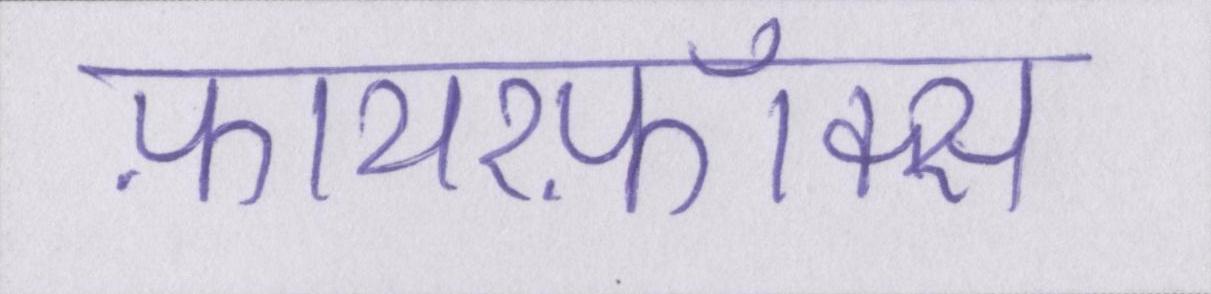 फ़ायरफ़ॉक्स